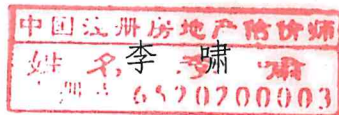 中国注册房地产估价师
姓名 李啸
6520200003